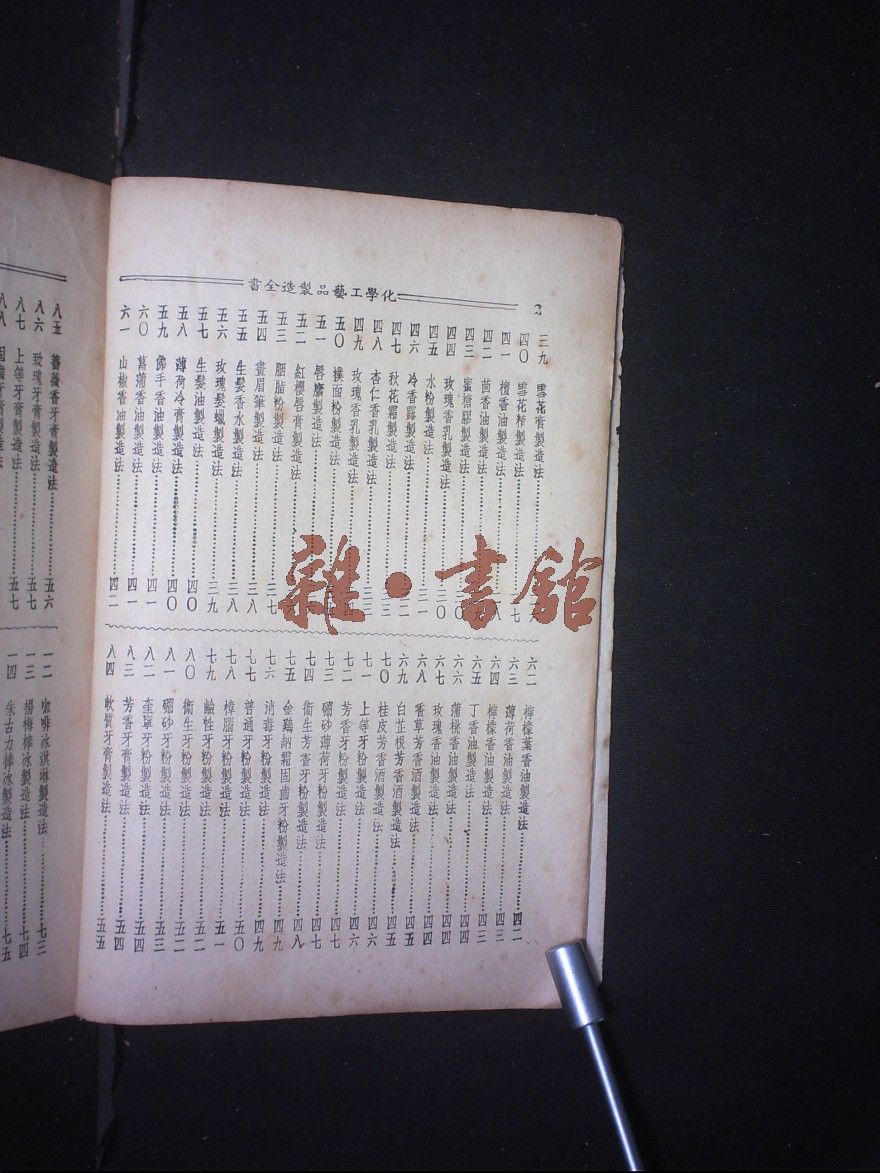 化學工藝品製造全書
2
三九 雪花膏製造法
四〇 雪花精製造法
四一 檀香油製造法
四二 茴香油製造法
四三 蜜糖膠製造法
四四 玫瑰香乳製造法……三〇
四五 水粉製造法……三一
四六 冷香露製造法
四七 秋花霜製造法
四八 杏仁香乳製造法
四九 玫瑰香乳製造法
五〇 撲面粉製造法
五一 唇膏製造法
五二 紅櫻唇膏製造法
五三 胭脂粉製造法
五四 畫眉筆製造法……三八
五五 生髮香水製造法……三八
五六 玫瑰髮蠟製造法……三九
五七 生髮油製造法……四〇
五八 薄荷冷膏製造法……四〇
五九 佛手香油製造法……四一
六〇 菖蒲香油製造法……四一
六一 山椒香油製造法……四二
六二 檸檬葉香油製造法……四二
六三 薄荷香油製造法……四三
六四 檸檬香油製造法……四三
六五 丁香油製造法……四四
六六 蒲桃香油製造法……四四
六七 玫瑰香油製造法……四四
六八 香草芳香酒製造法……四五
六九 白芷根芳香酒製造法……四五
七〇 桂皮芳香酒製造法……四六
七一 上等牙粉製造法……四六
七二 芳香牙粉製造法……四七
七三 硼砂薄荷牙粉製造法……四七
七四 衛生芳香牙粉製造法……四八
七五 金鷄納霜固齒牙粉製造法……四九
七六 消毒牙粉製造法……四九
七七 普通牙粉製造法……五〇
七八 樟腦牙粉製造法……五一
七九 鹼性牙粉製造法……五二
八〇 衛生牙粉製造法……五二
八一 硼砂牙粉製造法……五三
八二 奎寧牙粉製造法……五四
八三 芳香牙膏製造法……五四
八四 軟質牙膏製造法……五五
八五 薔薇香牙膏製造法……五六
八六 玫瑰牙膏製造法……五七
八七 上等牙膏製造法……五七
八八
一二 咖啡冰淇淋製造法……七三
一三 楊梅棒冰製造法……七四
一四 朱古力棒冰製造法……七五
雜·書館